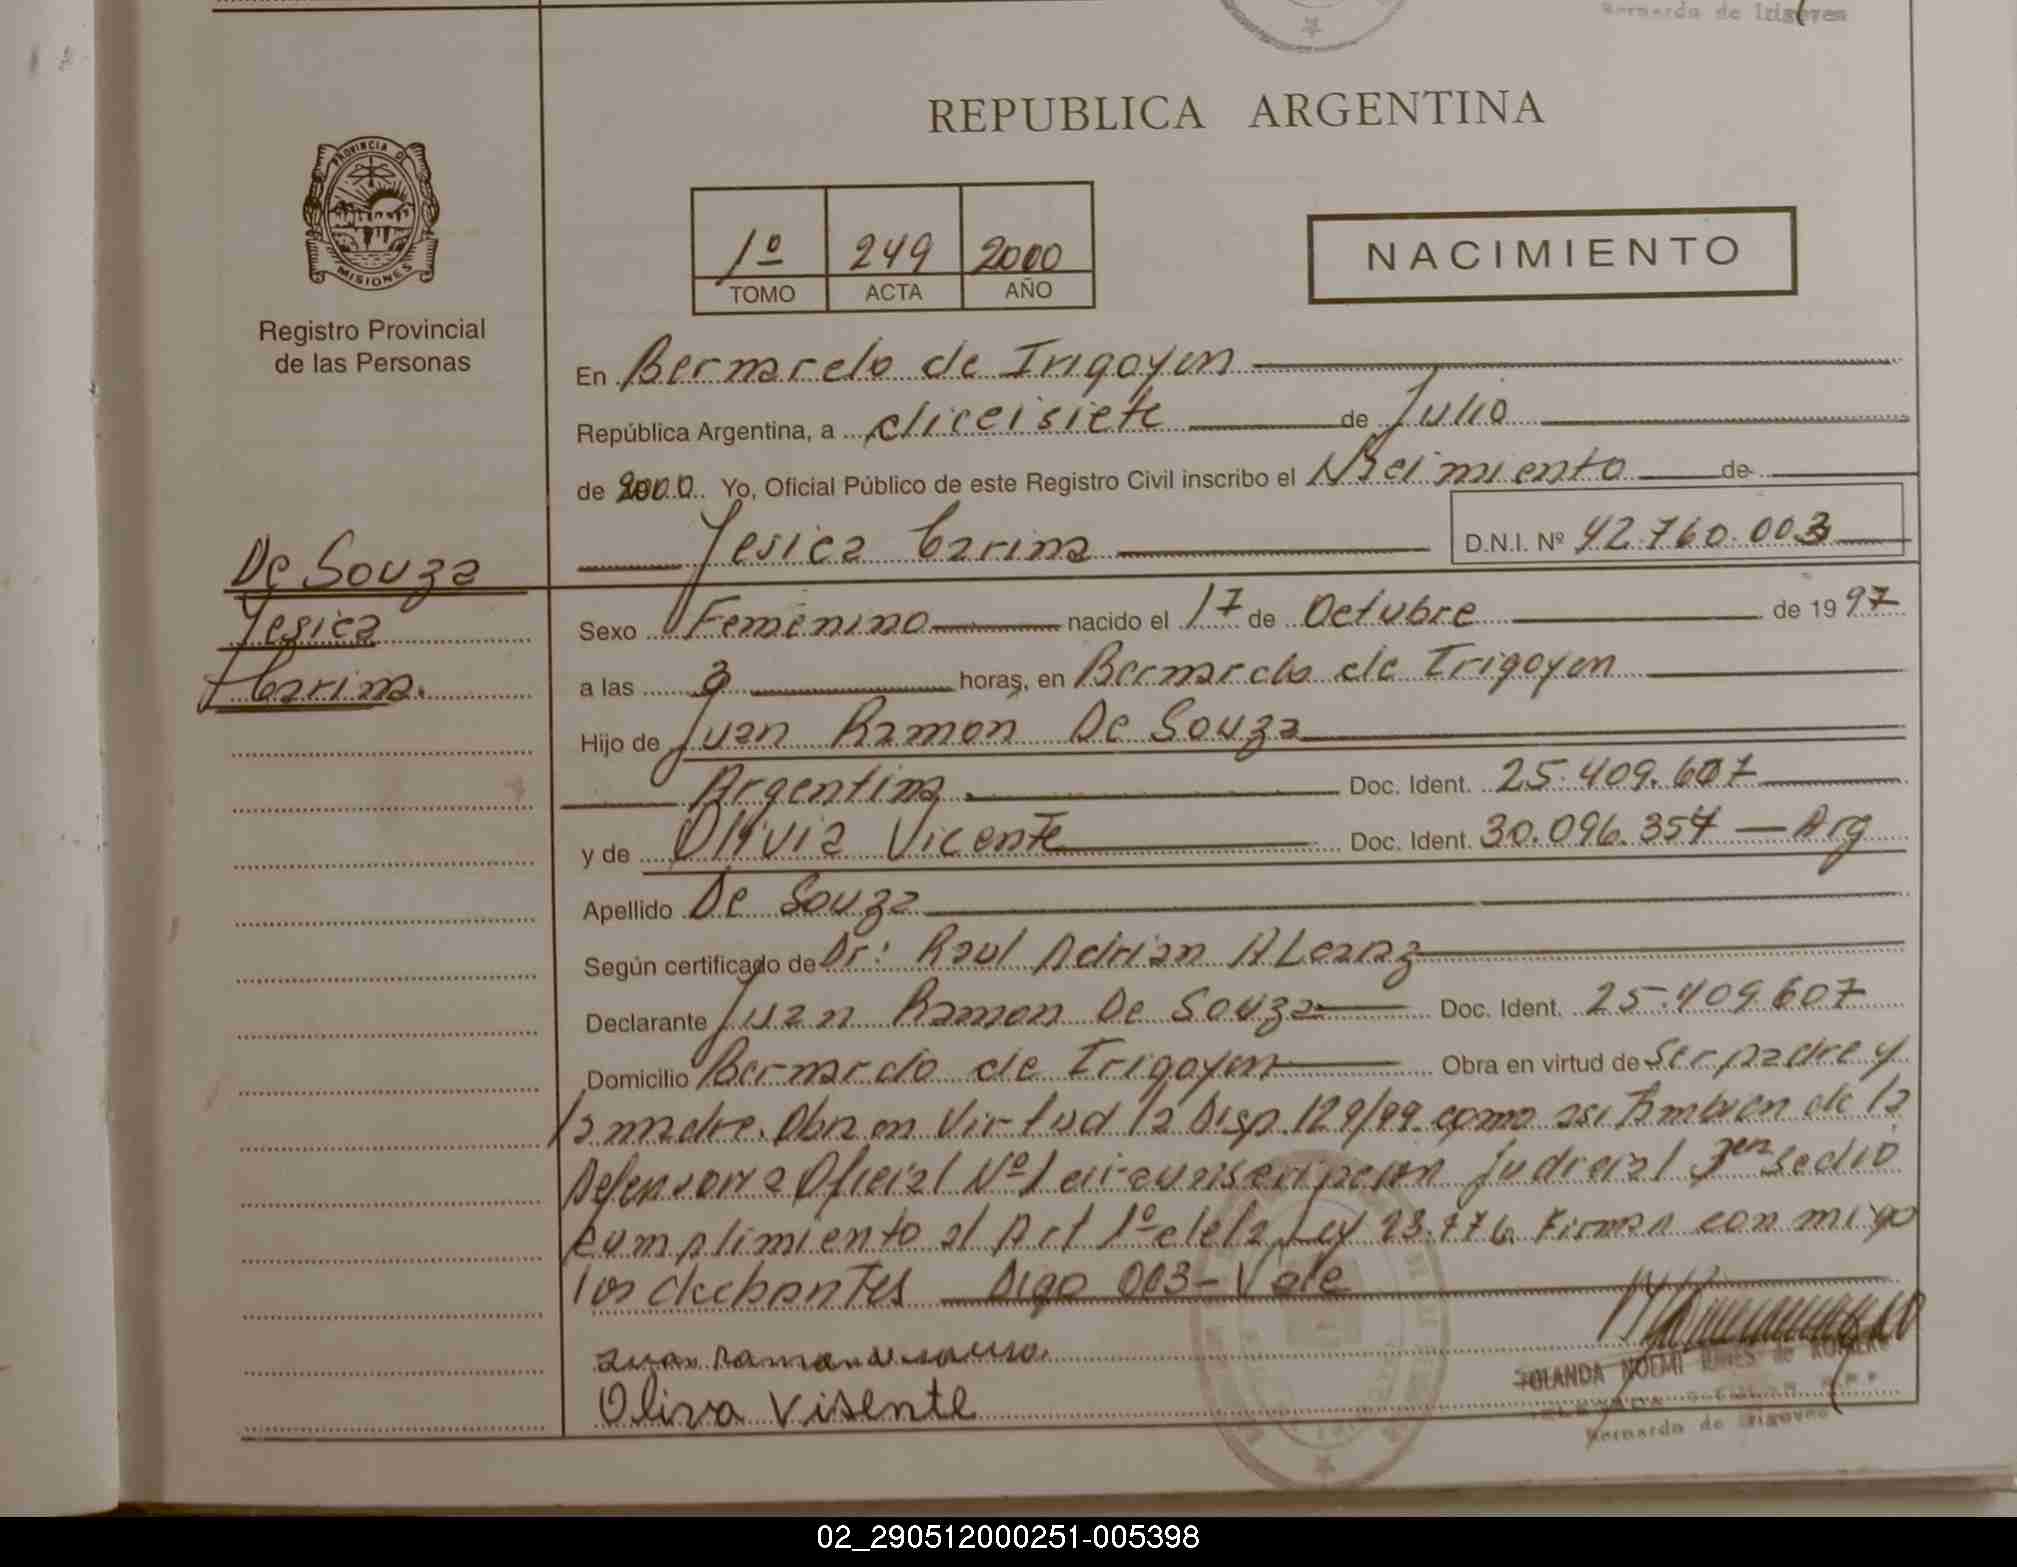 Bernardo de Irigoyen
REPUBLICA ARGENTINA
PROVINCIA DE
MISIONES
Registro Provincial
de las Personas
1º 249 2000
TOMO ACTA AÑO
NACIMIENTO
En Bernardo de Irigoyen
República Argentina, a diceisiete de Julio
de 2000 Yo, Oficial Público de este Registro Civil inscribo el Nacimiento de
Yesica Carina D.N.I. Nº 42.760.003
De Souza
Yesica
Carina.
Sexo Femenino nacido el 17 de Octubre de 1997
a las horas, en Bernardo de Irigoyen
Hijo de Juan Ramon De Souza
Argentina Doc. Ident. 25.409.607
y de Olivia Vicente Doc. Ident. 30.096.357 — Arg
Apellido De Souza
Según certificado de Dr: Raul Adrian ALcaraz
Declarante Juan Ramon De Souza Doc. Ident. 25.409.607
Domicilio Bernardo de Irigoyen Obra en virtud de Ser padre y
la madre. Obra en Virtud la Disp. 129/99. como asi Tambien de la
Defensoria Oficial Nº1 circunscripcion judicial se dió
cumplimiento al Art 1º de la Ley 23.776. Firman con migo
los Digo 003 - Vale
Juan Ramon de
Oliva Visente
YOLANDA NOEMI de
Bernardo de Irigoyen
02_290512000251-005398